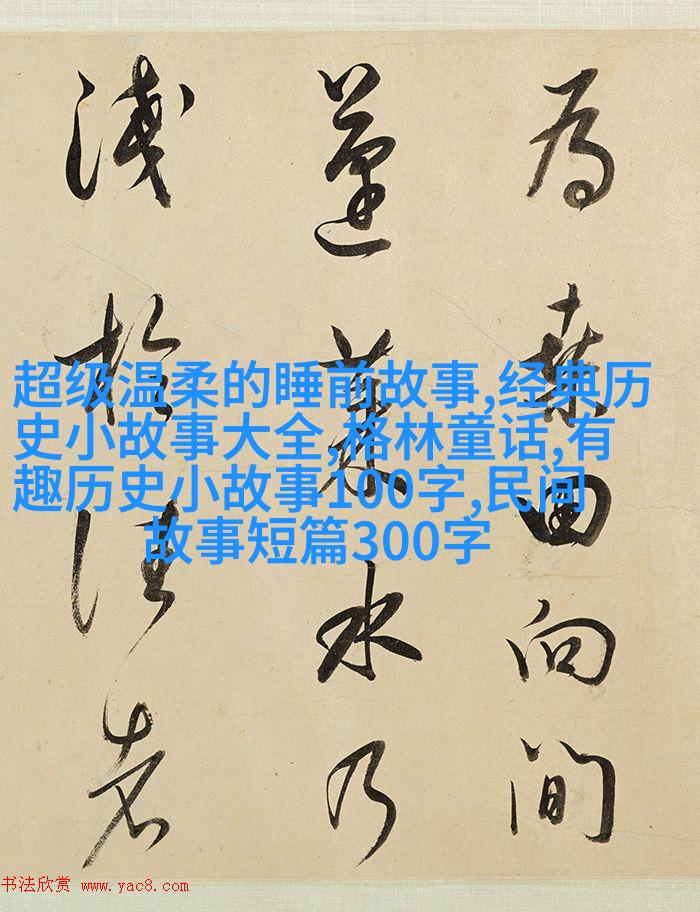 為桑田向間
蓬萊水乃
淺於往者
超级温柔的睡前故事,经典历
史小故事大全,格林童话,有
趣历史小故事100字,民间
故事短篇300字
书法欣赏 www.yac8.com